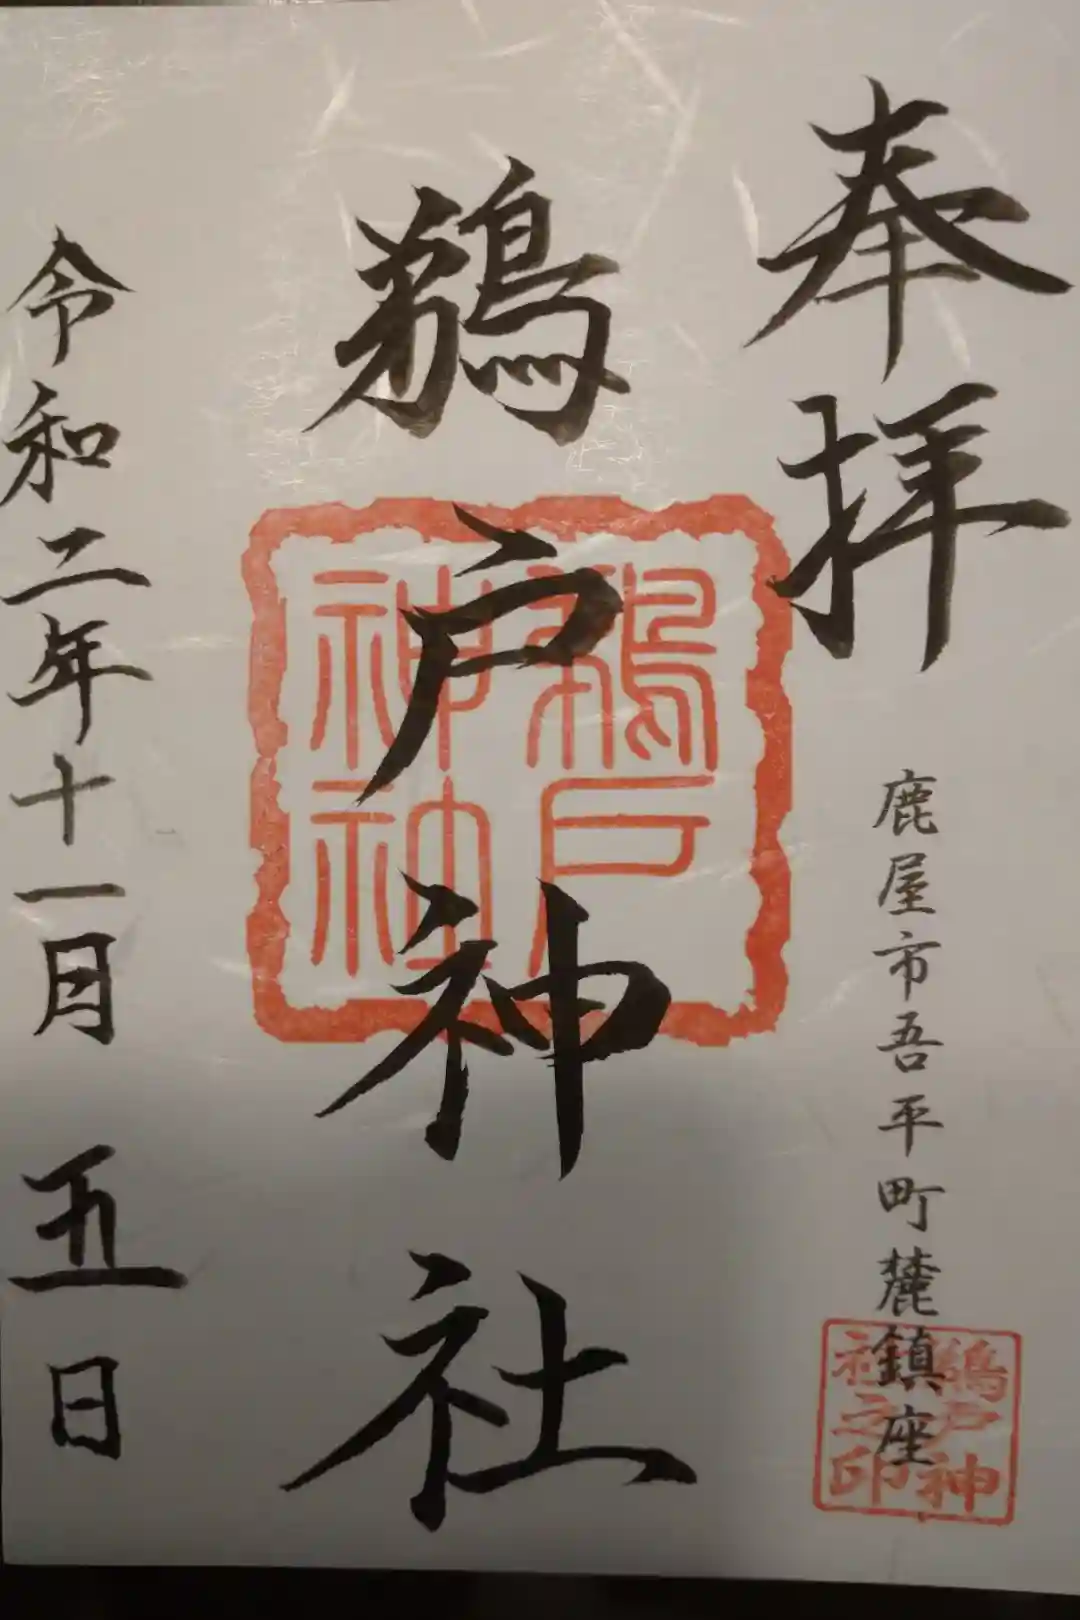 奉拝
鹿屋市吾平町麓鎮座
鵜戸神社
令和二年十一月五日
鵜戸
神社
鵜戸神
社之印